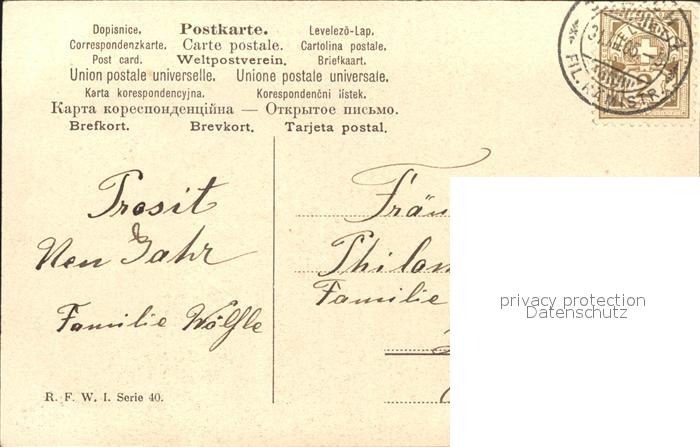 Dopisnice. Postkarte. Levelező-Lap.
Correspondenzkarte. Carte postale. Cartolina postale.
Post card. Weltpostverein. Briefkaart.
Union postale universelle. Unione postale universale.
Karta korespondencyjna. Korespondenční lístek.
Карта кореспонденційна — Открытое письмо.
Brefkort. Brevkort. Tarjeta postal.
FIL. RÄMISTR.
2
Prosit
Neu Jahr
Familie Wölfle
Fräu
Philom
Familie
R. F. W. I. Serie 40.
privacy protection
Datenschutz